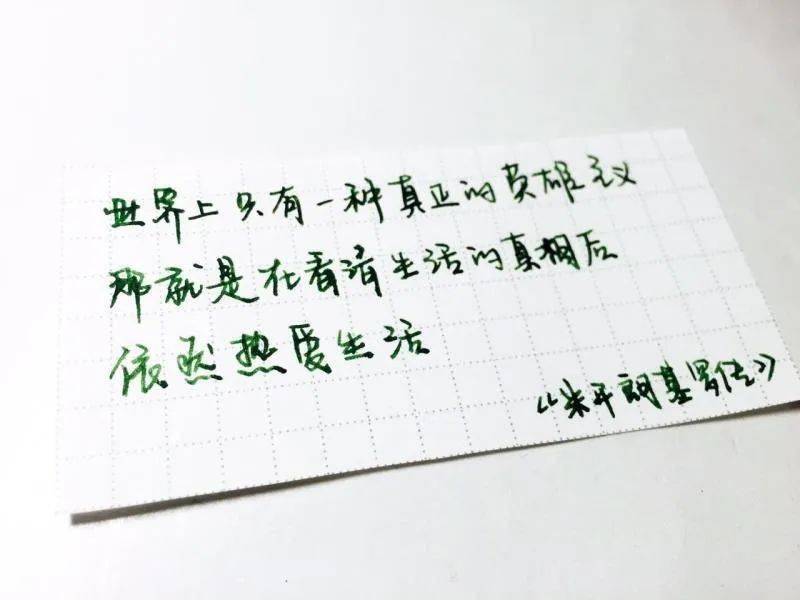 世界上只有一种真正的英雄主义
那就是在看清生活的真相后
依然热爱生活
《米开朗基罗传》